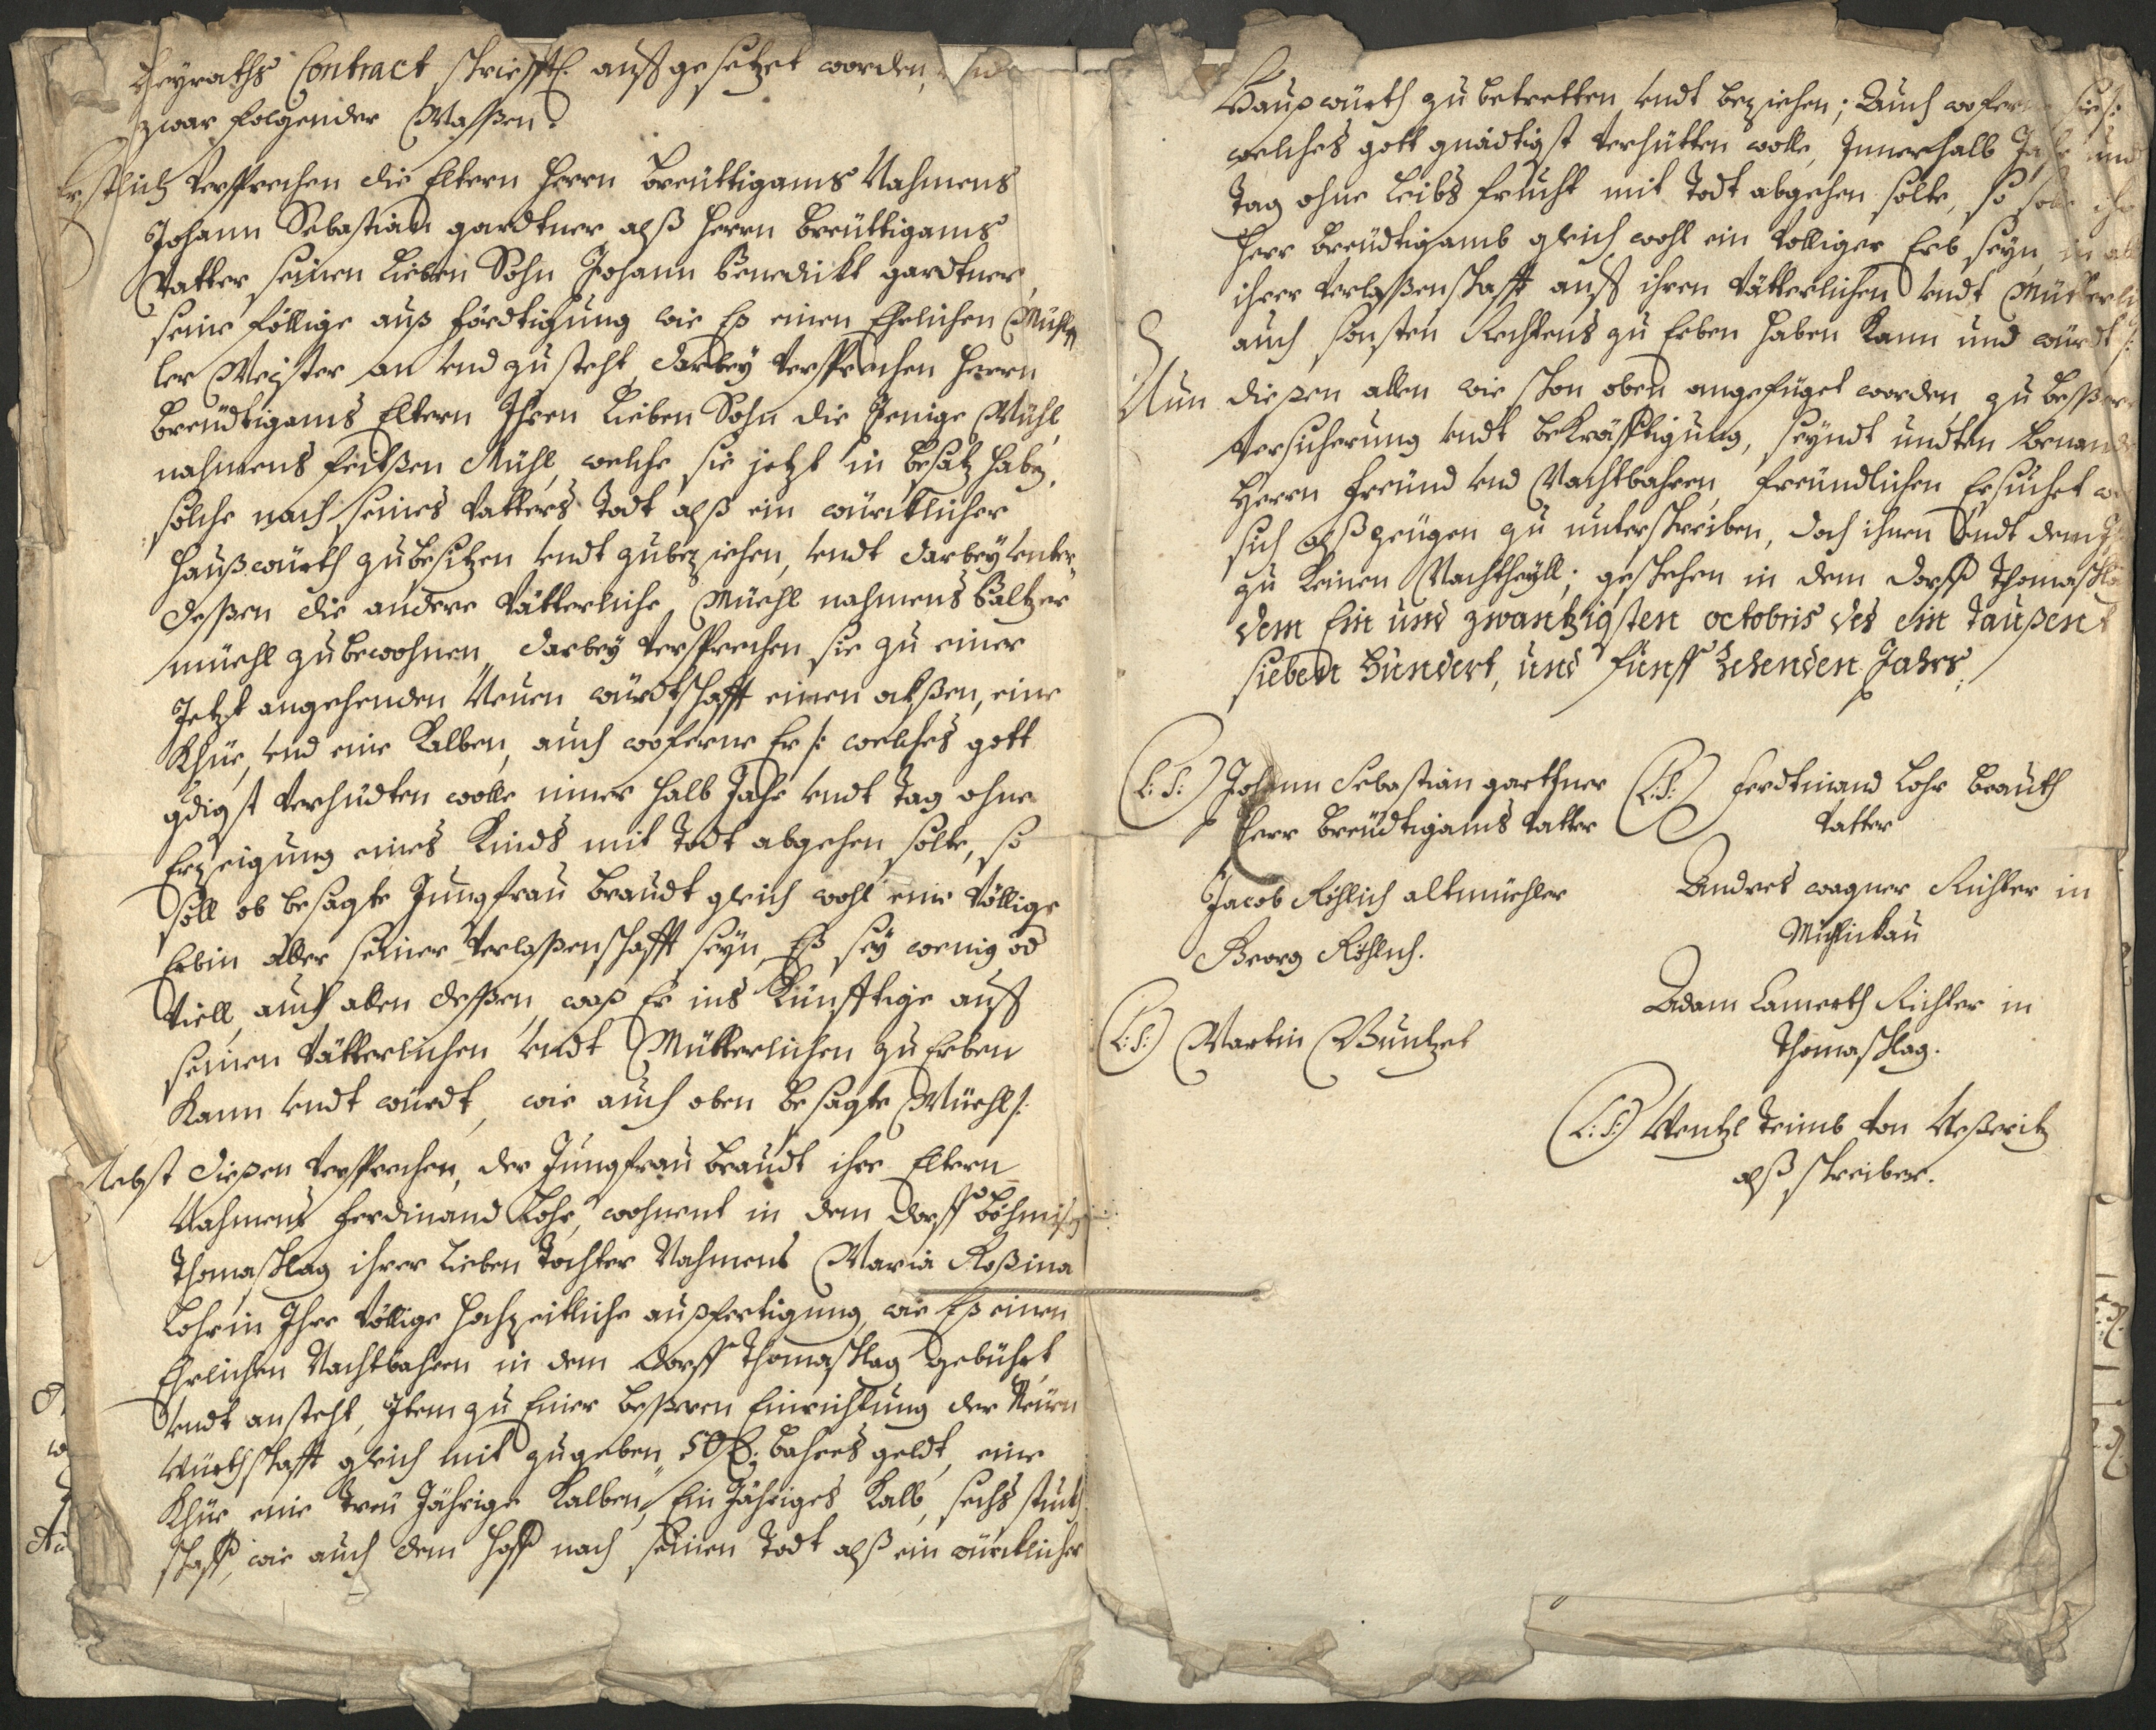 Heyraths Contract schriefftl. auffgesetzet worden, und
zwar folgender Massen.
Erstlich versprechen die Eltern Herrn Breuttigams Nahmens
Johann Sebastian gardtner alß Herrn Breuttigams
Vatter seinen lieben Sohn Johann Benedickt gardtner,
seine föllige auß förtigung wie Es einen Ehrlichen Mühl
ler Meister an und zu steht, darbey versprechen Herrn
Breudtigams Eltern Ihren lieben Sohn die Jenige Mühl
nahmens feitßen Mühl, welche sie jetzt in besatz haben,
solche nach seines Vatters Todt alß ein würcklicher
Haußwürth zu besitzen undt zubeziehen, undt darbey unter„
deßen die andere Vätterliche Müehl nahmens Baltzer
müehl zu bewohnen, darbey versprechen sie zu einer
Jetzt angehenden Neuen würdtschafft einen oxßen, eine
Khüe, und eine Kalben, auch woferne Er /: welches gott
gdigst verhudten wolle inner halb Jahr undt Tag ohne
Erzeigung eines Kinds mit Todt abgehen solte, so
soll ob besagte Jungfrau Braudt gleich wohl eine Völlige
Erbin aller seiner Verlaßenschafft seyn, Eß sey wenig od
Viell, auch allen deßen, waß Er ins künfftige auß
seinen Vätterlichen undt Mütterlichen zu Erben
Kann undt würdt, wie auch oben besagte Müehl /:
Nebst dießen versprechen, der Jungfrau Braudt ihre Eltern
Nahmens Ferdinand Lohr, wohnent in dem dorff Böhmisch
Thomaschlag ihrer lieben Tochter Nahmens Maria Roßina
Lohrin Ihre Völlige hochzeitliche außfertigung, wie Eß einen
Ehrlichen Nachtbahren in dem dorff Thomaschlag gebührt,
undt ansteht, Item zu Einer beßeren Einrichtung der Neuen
würthschafft gleich mit zugeben, 50 fl. bahres geldt, eine
Khüe eine Treu Jährige Kalben, Ein Jähriges Kalb, sechs stuckh
schaff, wie auch dem Hoff nach seinen Todt alß ein würcklicher
Haußwürth zu betretten undt beziehen; Auch wofern sie /:
welches gott gnädtigst verhütten wolle, Innerhalb Jahr und
Tag ohne Leibs frucht mit Todt abgehen solte, so solle ihr
Herr Breudtigamb gleich wohl ein Völliger Erb seyn, in all
ihrer Verlaßenschafft auß ihren Vätterlichen undt Mütterlich
auch sonsten Rechtens zu Erben haben Kann und würdt /:
Nun dießen allen wie schon oben angefüget worden, zu beßerer
Versicherung undt bekräfftigung, seyndt undten benande
Herrn freünd und Nachtbahren, freündlichen Ersuchet
sich alß zeügen zu unterschreiben, doch ihnen undt dem
zu keinen Nachtheyll; geschehen in dem dorff Thomaschlag
dem Ein und zwantzigsten octobris des ein Taußent
sieben Hundert, und fünff Zehenden Jahrs.
(L: S:) Johann Sebastian garthner (L: S:) Ferdtinand Lohr Brauth
Herr Breudtigams Vatter Vatter
Jacob Röhlich altmüehler Andres wagner Richter in
Georg Röhlich. Michlickau
Adam Lamerth Richter in
(L: S:) Martin Wuntzel Thomaschlag.
(L: S:) Wentzl Teimb von Neßeritz
alß schreiber.